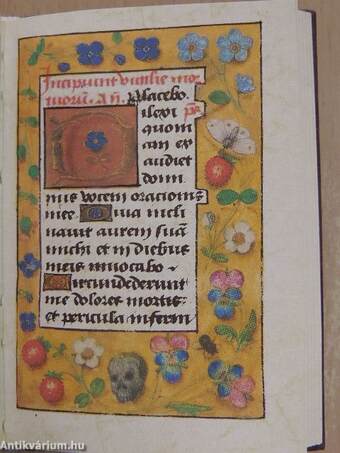 Incipiunt vigilie mor
tuorum. añ. Placebo.
ilexi ps̄
quoni
am ex
audiet
domi
nus vocem orationis
mee. Quia incli
navit aurem suā
michi et in diebus
meis invocabo
Circundederunt
me dolores mortis:
et pericula inferni
Antikvárium.hu